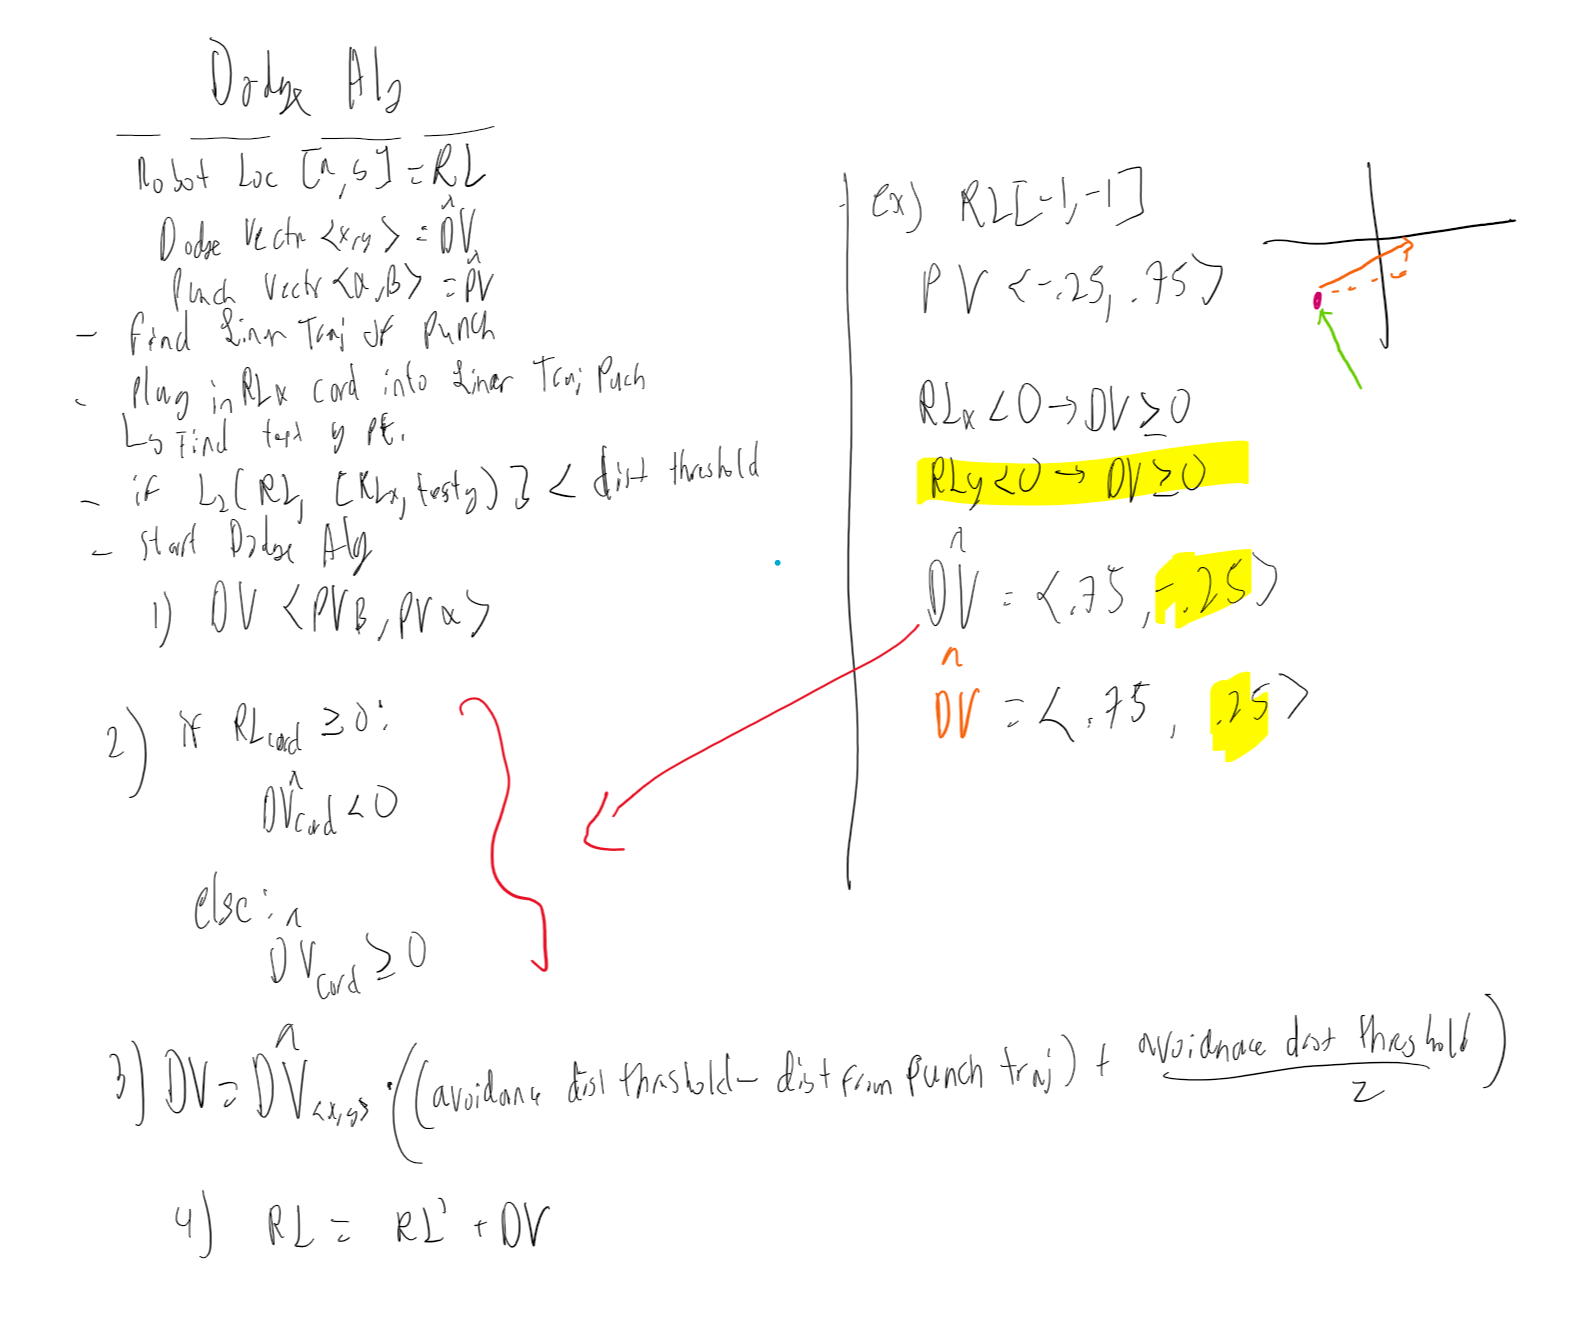 Dodge Alg
Robot Loc [r,s] = RL
Dodge Vectr <x,y> = D̂V
Punch Vectr <α,β> = P̂V
- find Linr Traj of Punch
- Plug in RLx cord into Liner Traj Puch
↳ Find test y pt.
- if L₂(RL, [RLx, testy)] < dist threshold
- start Dodge Alg
1) DV <PVβ, PVα>
2) if RLcord ≥ 0:
D̂Vcord < 0
else:
D̂Vcord ≥ 0
3) DV = D̂V<x,y> · ((avoidanc dist threshold - dist from punch traj) + avoidnace dist threshold / 2)
4) RL = RL' + DV
ex) RL[-1,-1]
PV <-.25, .75>
RLx < 0 → DV ≥ 0
RLy < 0 → DV ≥ 0
D̂V = <.75, -.25>
D̂V = <.75, .25>